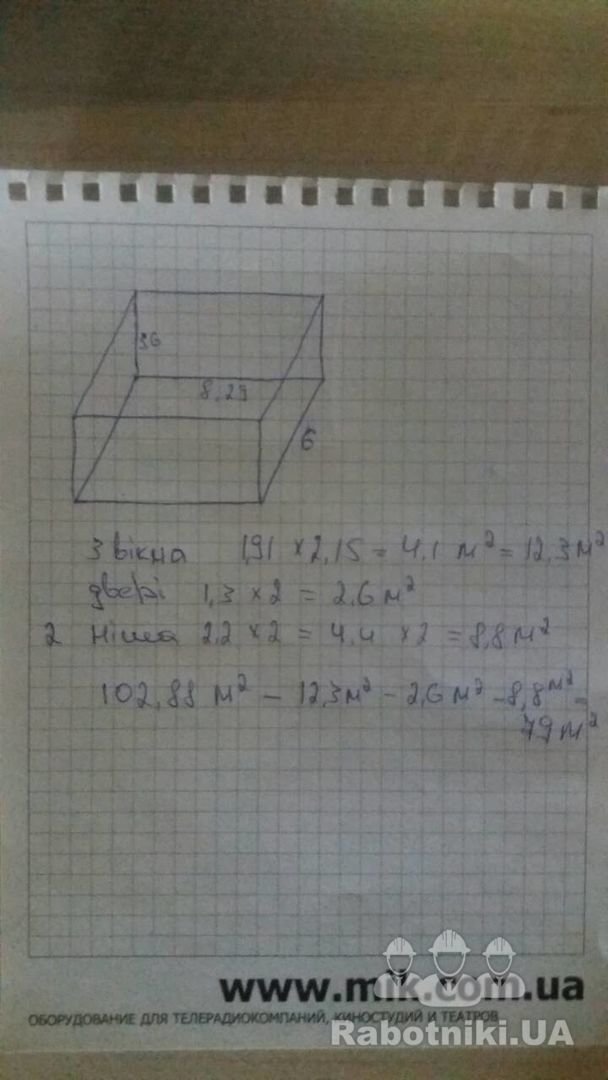 36
8,29
6
3 вікна 1,91 × 2,15 = 4,1 м² = 12,3 м²
двері 1,3 × 2 = 2,6 м²
2 ніша 2,2 × 2 = 4,4 × 2 = 8,8 м²
102,88 м² - 12,3 м² - 2,6 м² - 8,8 м² =
79 м²
www.mik.com.ua
ОБОРУДОВАНИЕ ДЛЯ ТЕЛЕРАДИОКОМПАНИЙ, КИНОСТУДИЙ И ТЕАТРОВ
Rabotniki.UA